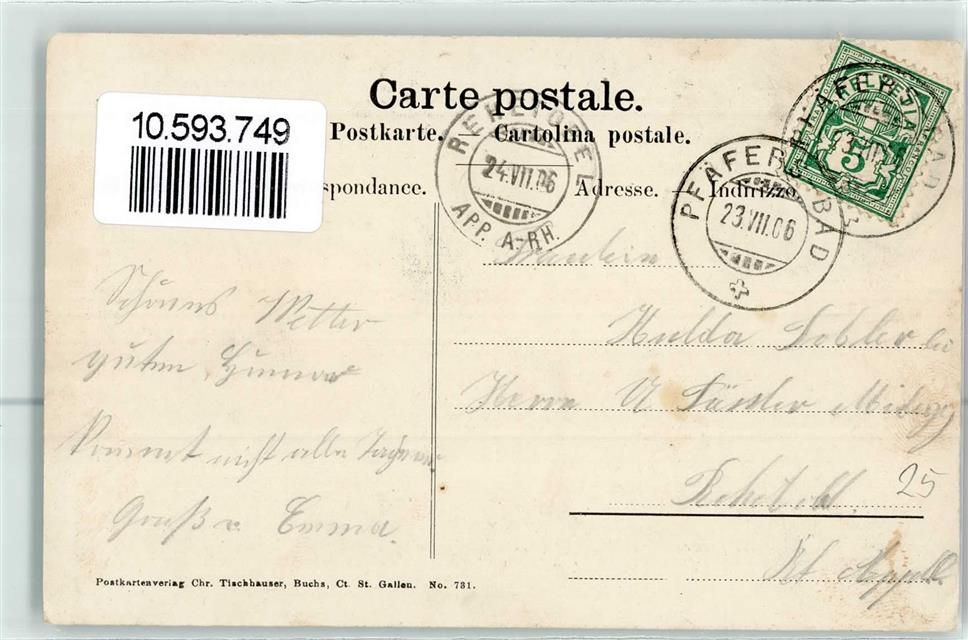 Carte postale.
10.593.749
Postkarte. — Cartolina postale.
spondance.
Adresse. — Indirizzo
REHETOBEL
24.VII.06
APP. A-RH.
PFÄFERS BAD
23.VII.06
HELVETIA
5
Fräulein
Hulda Tobler bei
Herrn U
Rehetobel.
Kt Appell.
25
Schönes Wetter
guten Humor
kommt nicht alle Tage
Gruß v. Emma.
Postkartenverlag Chr. Tischhauser, Buchs, Ct. St. Gallen. No. 731.